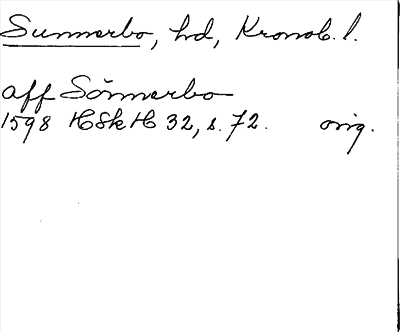 Sunnerbo, hd, Kronob. l.
aff Sönnerbo
1598 HSkH 32, s. 72. orig.